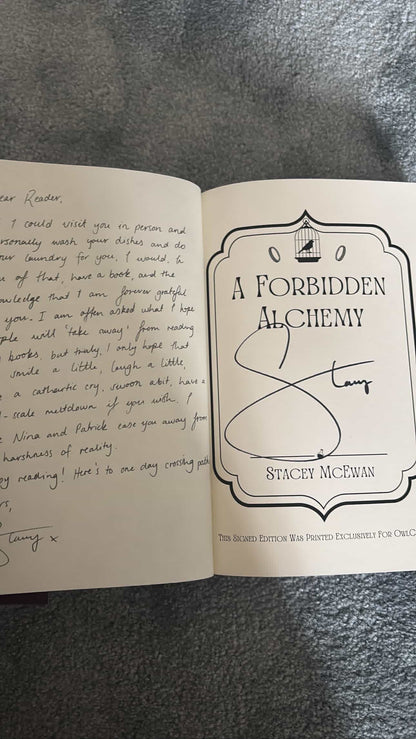 ear Reader,
I could visit you in person and
rsonally wash your dishes and do
our laundry for you, I would. In
u of that, have a book, and the
nowledge that I am forever grateful
you. I am often asked what I hope
ople will 'take away' from reading
books, but truly, I only hope that
smile a little, laugh a little,
e a cathartic cry, swoon a bit, have a
l-scale meltdown if you wish. I
e Nina and Patrick ease you away from
harshness of reality.
py reading! Here's to one day crossing path
rs,
Stacey x
A FORBIDDEN
ALCHEMY
Stacey
STACEY MCEWAN
THIS SIGNED EDITION WAS PRINTED EXCLUSIVELY FOR OWLC